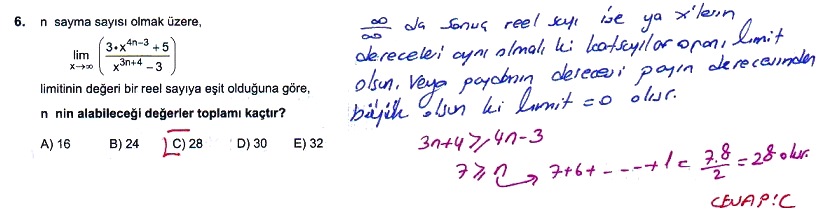 6. n sayma sayısı olmak üzere,
lim x→∞ ( (3•x^{4n−3} + 5) / (x^{3n+4} − 3) )
limitinin değeri bir reel sayıya eşit olduğuna göre,
n nin alabileceği değerler toplamı kaçtır?
A) 16 B) 24 C) 28 D) 30 E) 32
∞/∞ da sonuç reel sayı ise ya x'lerin
dereceleri aynı olmalı ki katsayılar oranı limit
olsun. Veya paydanın derecesi payın derecesinden
büyük olsun ki limit = 0 olur.
3n+4 ≥ 4n−3
7 ≥ n → 7+6+ ---- +1 = 7.8/2 = 28 olur.
CEVAP: C